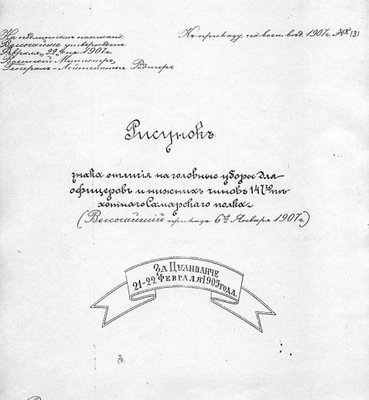 На подлинномъ написано:
Высочайше утвержденъ
Февраля 22 дня 1907 г.
Военный Министръ,
Генералъ-Лейтенантъ Редигеръ
Къ приказу по воен. вѣд. 1907 г. № 131
Рисунокъ
знака отличія на головные уборы для
офицеровъ и нижнихъ чиновъ 147го пѣ-
хотнаго Самарскаго полка
(Высочайшій приказъ 6го Января 1907 г.)
ЗА ЦИНХЕЧЕНЪ
21-22 ФЕВРАЛЯ 1905 ГОДА.